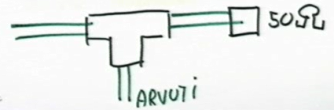 50Ω
ARVUTi